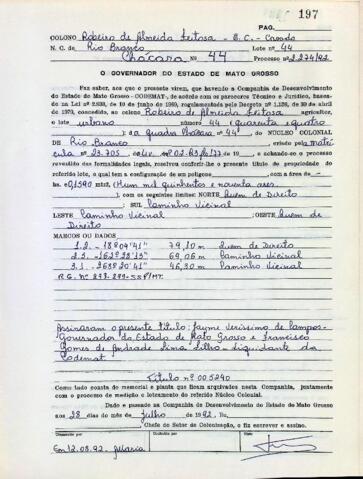 197
PAG.
COLONO Robeiro de Almeida Feitosa - C.C. - Casado
N. C. de Rio Branco Lote n.º 44
Chácara nº 44 Processo nº 2.274/92
O GOVERNADOR DO ESTADO DE MATO GROSSO
Faz saber, aos que o presente virem, que havendo a Companhia de Desenvolvimento
do Estado de Mato Grosso - CODEMAT, de acordo com os pareceres Técnico e Jurídico, baseados
na Lei nº 2.838, de 10 de junho de 1969, regulamentada pelo Decreto nº 1.138, de 30 de abril
de 1973, concedido ao colono Robeiro de Almeida Feitosa agricultor,
o lote urbano número 44 (Quarenta e quatro
) da quadra Chácara nº 44 do NÚCLEO COLONIAL
DE Rio Branco criado pela matrí
cula nº 23.705 de 02.
revestido das formalidades legais, resolveu conferir-lhe o presente título de propriedade do
referido lote, o qual tem a configuração de um polígono com a área de -
ha 0,1590 m² (Hum mil quinhentos e noventa ares.
) com os seguintes limites: NORTE Quem de Direito
; SUL Caminho Vicinal
LESTE Caminho Vicinal ; OESTE Quem de
Direito
MARCOS OU DADOS
1.2. - 18º04'41" 79,10 m Quem de Direito
2.3. - 162º22'13" 69,06 m Caminho Vicinal
3.1. - 263º20'41" 46,30 m Caminho Vicinal
R.G. Nº 273.299-SSP/MT.
Assinaram o presente título: Jayme Verissimo de Campos -
Governador do Estado de Mato Grosso e Francisco
Gomes de Andrade Lima Filho - Liquidante da
Codemat
Título nº 005240
Como tudo consta do memorial e planta que ficam arquivados nesta Companhia, juntamente
com o processo de medição e loteamento do referido Núcleo Colonial.
Dado e passado na Companhia de Desenvolvimento do Estado de Mato Grosso
aos 28 dias do mês de julho de 1992, Eu,
Chefe do Setor de Colonização, o fiz escrever e assino.
Em 12.08.92